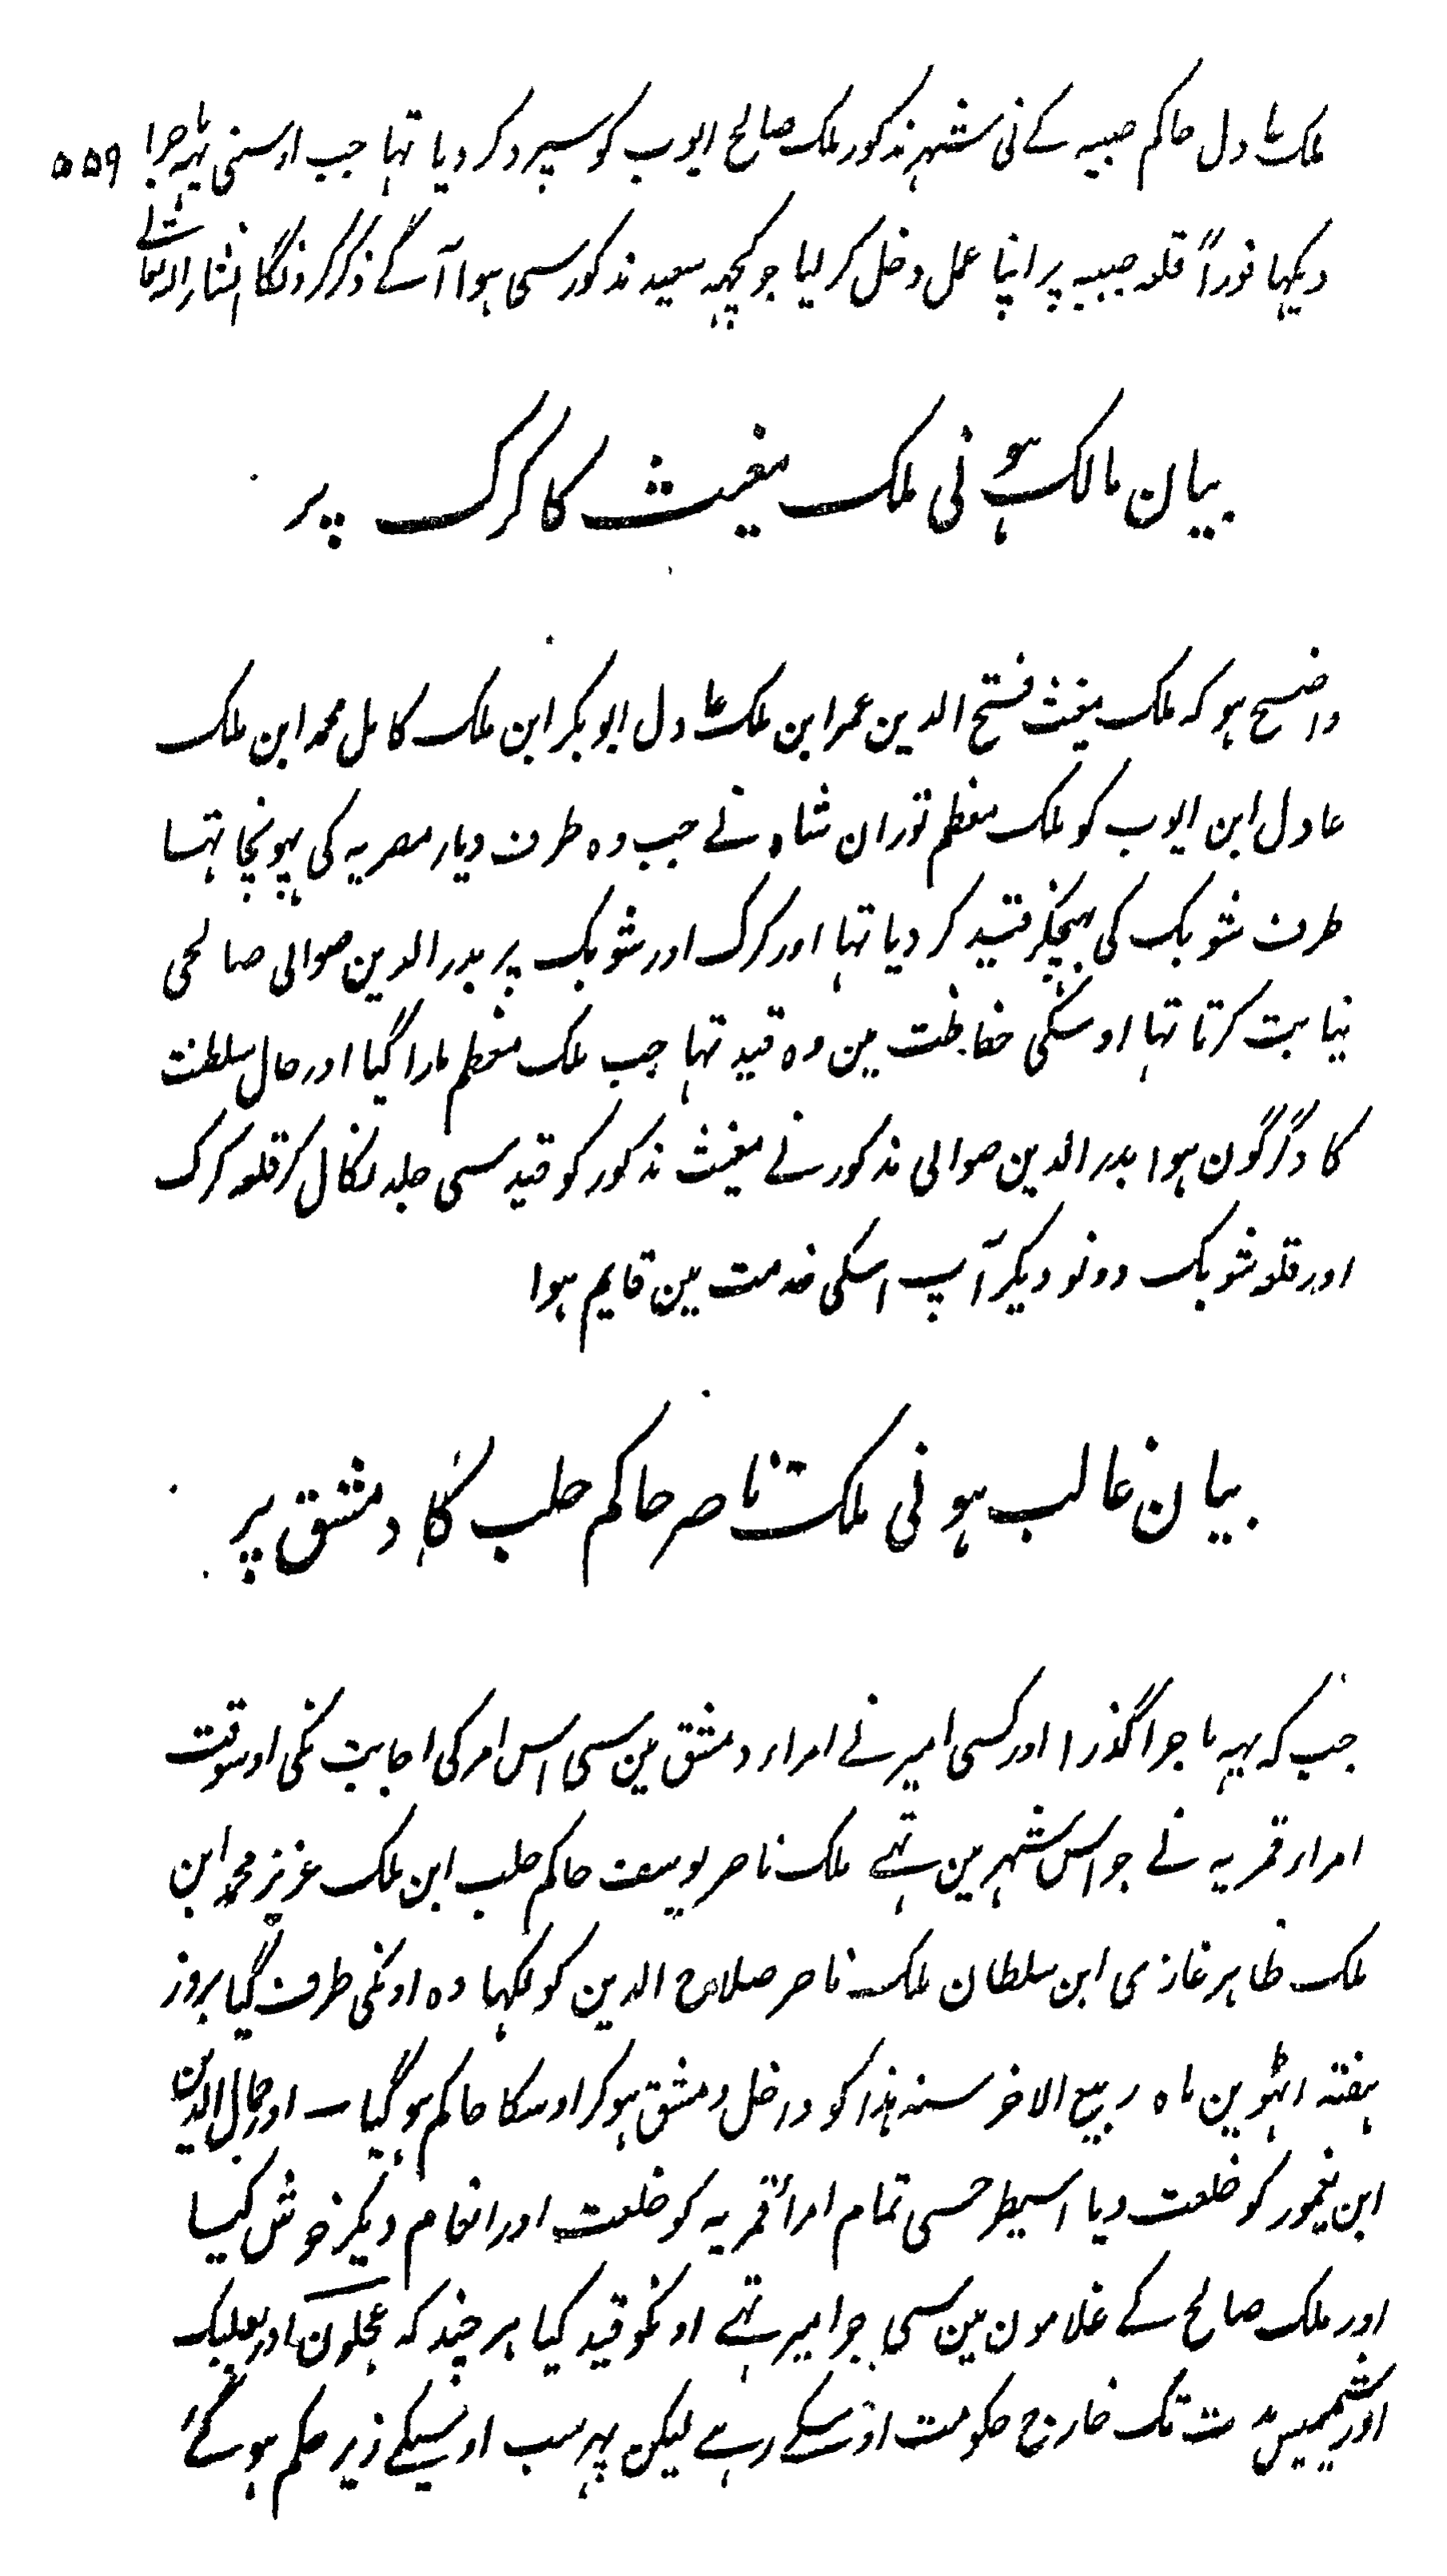 ملک عادل حاکم صبیبہ کے نی شہر مذکور ملک صالح ایوب کو سپرد کر دیا تہا جب اوسنی یہہ ماجرا ۵۵۹
دیکہا فوراً قلعہ صبیبہ پر اپنا عمل دخل کر لیا جو کچہہ سعید مذکور سی ہوا آگے ذکر کرونگا انشاراللہ تعالے
بیان مالک ہونی ملک مغیث کا کرک پر
واضح ہو کہ ملک مغیث فتح الدین عمر ابن ملک عادل ابو بکر ابن ملک کامل محمد ابن ملک
عادل ابن ایوب کو ملک معظم توران شاہ نے جب وہ طرف دیار مصریہ کی پہونچا تہا
طرف شوبک کی بہیجکر قید کر دیا تہا اور کرک اور شوبک پر بدر الدین صوالی صالحی
نیابت کرتا تہا اوسکی حفاظت مین وہ قید تہا جب ملک معظم مارا گیا اور حال سلطنت
کا دگرگون ہوا بدر الدین صوالی مذکور نے مغیث مذکور کو قید سی جلد نکال کر قلعہ کرک
اور قلعہ شوبک دونو دیکر آپ اسکی خدمت مین قایم ہوا
بیان غالب ہونی ملک ناصر حاکم حلب کا دمشق پر
جب کہ یہہ ماجرا گذرا اور کسی امیر نے امراء دمشق مین سی اس امر کی اجابت نکی اوسوقت
امراء قمریہ نے جو اس شہر مین تہے ملک ناصر یوسف حاکم حلب ابن ملک عزیز محمد ابن
ملک ظاہر غازی ابن سلطان ملک ناصر صلاح الدین کو لکہا وہ اونکی طرف گیا بروز
ہفتہ اٹہوین ماہ ربیع الاخر سنہ ہذا کو داخل دمشق ہو کر اوسکا حاکم ہو گیا ۔ اور جمال الدین
ابن یغمور کو خلعت دیا اسیطرحسی تمام امرأ قمریہ کو خلعت اور انعام دیکر خوش کیا
اور ملک صالح کے غلامون مین سی جو امیر تہے اونکو قید کیا ہر چند کہ عجلون اور بعلبک
اور شمیمیس مدت تک خارج حکومت اوسکے رہے لیکن پہر سب اوسیکے زیر حکم ہو گئے